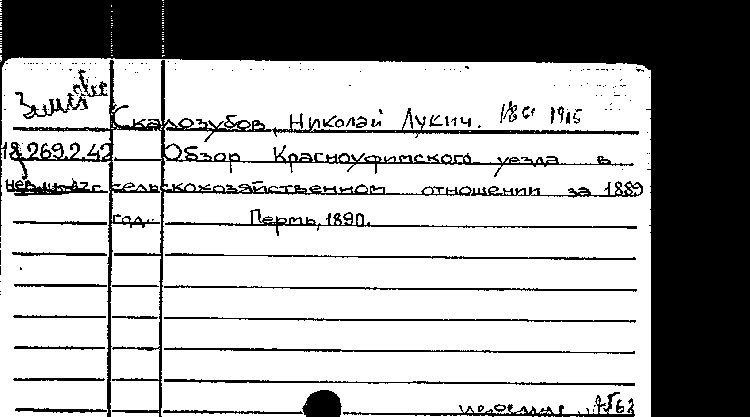 Скалозубов, Николай Лукич. 1861 1915
18.269.2.42 Обзор Красноуфимского уезда в
сельскохозяйственном отношении за 1889
год. Пермь, 1890.